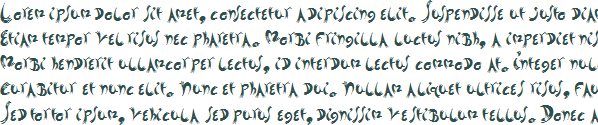 Lorem ipsum dolor sit amet, consectetur adipiscing elit. Suspendisse ut justo diam
Etiam tempor vel risus nec pharetra. Morbi fringilla luctus nibh, a imperdiet nis
Morbi hendrerit ullamcorper lectus, id interdum lectus commodo at. Integer nul
Curabitur et nunc elit. Nunc et pharetra dui. Nullam aliquet ultrices risus, fau
Sed tortor ipsum, vehicula sed purus eget, dignissim vestibulum tellus. Donec a